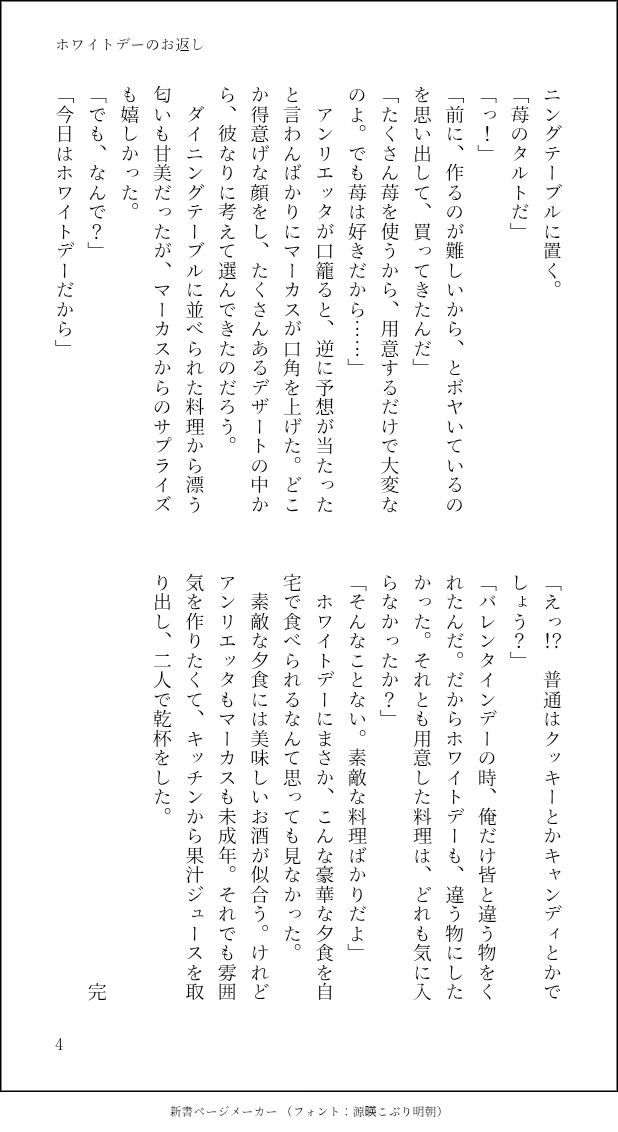 ホワイトデーのお返し
ニングテーブルに置く。
「苺のタルトだ」
「っ！」
「前に、作るのが難しいから、とボヤいているの
を思い出して、買ってきたんだ」
「たくさん苺を使うから、用意するだけで大変な
のよ。でも苺は好きだから……」
　アンリエッタが口籠ると、逆に予想が当たった
と言わんばかりにマーカスが口角を上げた。どこ
か得意げな顔をし、たくさんあるデザートの中か
ら、彼なりに考えて選んできたのだろう。
　ダイニングテーブルに並べられた料理から漂う
匂いも甘美だったが、マーカスからのサプライズ
も嬉しかった。
「でも、なんで？」
「今日はホワイトデーだから」
「えっ!?　普通はクッキーとかキャンディとかで
しょう？」
「バレンタインデーの時、俺だけ皆と違う物をく
れたんだ。だからホワイトデーも、違う物にした
かった。それとも用意した料理は、どれも気に入
らなかったか？」
「そんなことない。素敵な料理ばかりだよ」
　ホワイトデーにまさか、こんな豪華な夕食を自
宅で食べられるなんて思っても見なかった。
　素敵な夕食には美味しいお酒が似合う。けれど
アンリエッタもマーカスも未成年。それでも雰囲
気を作りたくて、キッチンから果汁ジュースを取
り出し、二人で乾杯をした。
完
4
新書ページメーカー（フォント：源暎こぶり明朝）